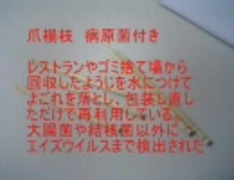 爪楊枝　病原菌付き
レストランやゴミ捨て場から
回収したようじを水につけて
よごれを落とし、包装し直し
ただけで再利用している。
大腸菌や結核菌以外に
エイズウイルスまで検出された